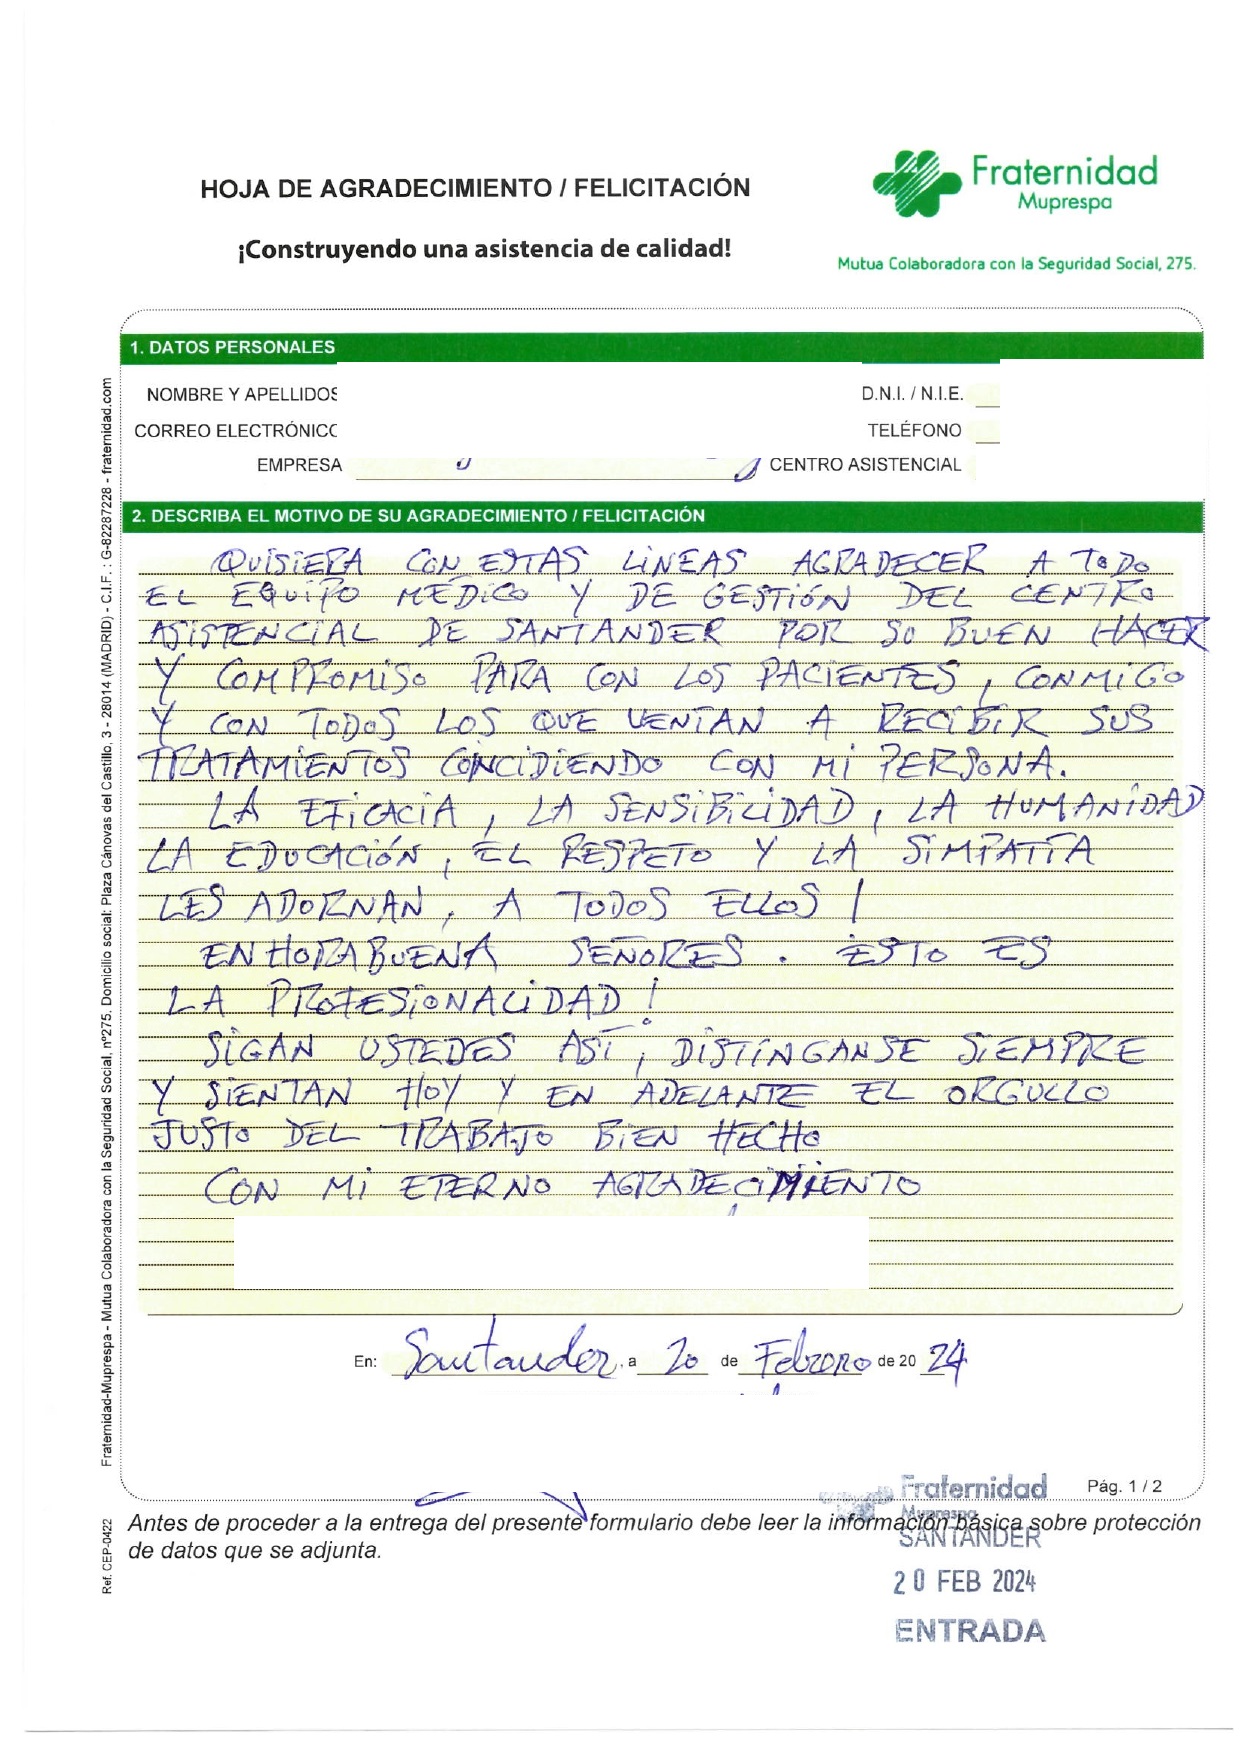 HOJA DE AGRADECIMIENTO / FELICITACIÓN
¡Construyendo una asistencia de calidad!
Fraternidad
Muprespa
Mutua Colaboradora con la Seguridad Social, 275.
1. DATOS PERSONALES
NOMBRE Y APELLIDOS
D.N.I. / N.I.E.
CORREO ELECTRÓNICO
TELÉFONO
EMPRESA
CENTRO ASISTENCIAL
2. DESCRIBA EL MOTIVO DE SU AGRADECIMIENTO / FELICITACIÓN
QUISIERA CON ESTAS LINEAS AGRADECER A TODO
EL EQUIPO MEDICO Y DE GESTIÓN DEL CENTRO
ASISTENCIAL DE SANTANDER POR SU BUEN HACER
Y COMPROMISO PARA CON LOS PACIENTES, CONMIGO
Y CON TODOS LOS QUE VENIAN A RECIBIR SUS
TRATAMIENTOS CONCIDIENDO CON MI PERSONA.
LA EFICACIA, LA SENSIBILIDAD, LA HUMANIDAD
LA EDUCACIÓN, EL RESPETO Y LA SIMPATIA
LES ADORNAN, A TODOS ELLOS!
ENHORABUENA SEÑORES. ESTO ES
LA PROFESIONALIDAD!
SIGAN USTEDES ASÍ, DISTINGANSE SIEMPRE
Y SIENTAN HOY Y EN ADELANTE EL ORGULLO
JUSTO DEL TRABAJO BIEN HECHO
CON MI ETERNO AGRADECIMIENTO
En: Santander, a 20 de Febrero de 20 24
Pág. 1 / 2
Antes de proceder a la entrega del presente formulario debe leer la información básica sobre protección
de datos que se adjunta.
Fraternidad
Muprespa
SANTANDER
20 FEB 2024
ENTRADA
Fraternidad-Muprespa - Mutua Colaboradora con la Seguridad Social, nº275. Domicilio social: Plaza Cánovas del Castillo, 3 - 28014 (MADRID) - C.I.F. : G-82287228 - fraternidad.com
Ref. CEP-0422